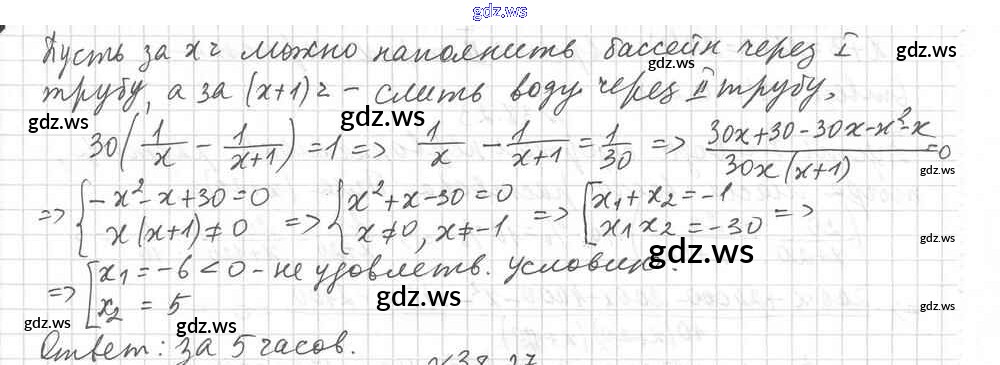 gdz.ws
Пусть за x ч можно наполнить бассейн через I
gdz.ws
трубу, а за (x+1) ч – слить воду через II трубу,
gdz.ws gdz.ws gdz.ws
30(1/x - 1/(x+1)) = 1 => 1/x - 1/(x+1) = 1/30 => (30x+30-30x-x²-x)/(30x(x+1)) = 0
gdz.ws
=> { -x²-x+30=0 => { x²+x-30=0 => [ x₁+x₂=-1 =>
{ x(x+1)≠0 { x≠0, x≠-1 [ x₁x₂=-30
gdz.ws gdz.ws gdz.ws
=> [ x₁=-6<0 – не удовлетв. условию.
[ x₂ = 5
gdz.ws gdz.ws gdz.ws
Ответ: за 5 часов.
gdz.ws gdz.ws gdz.ws
38.27